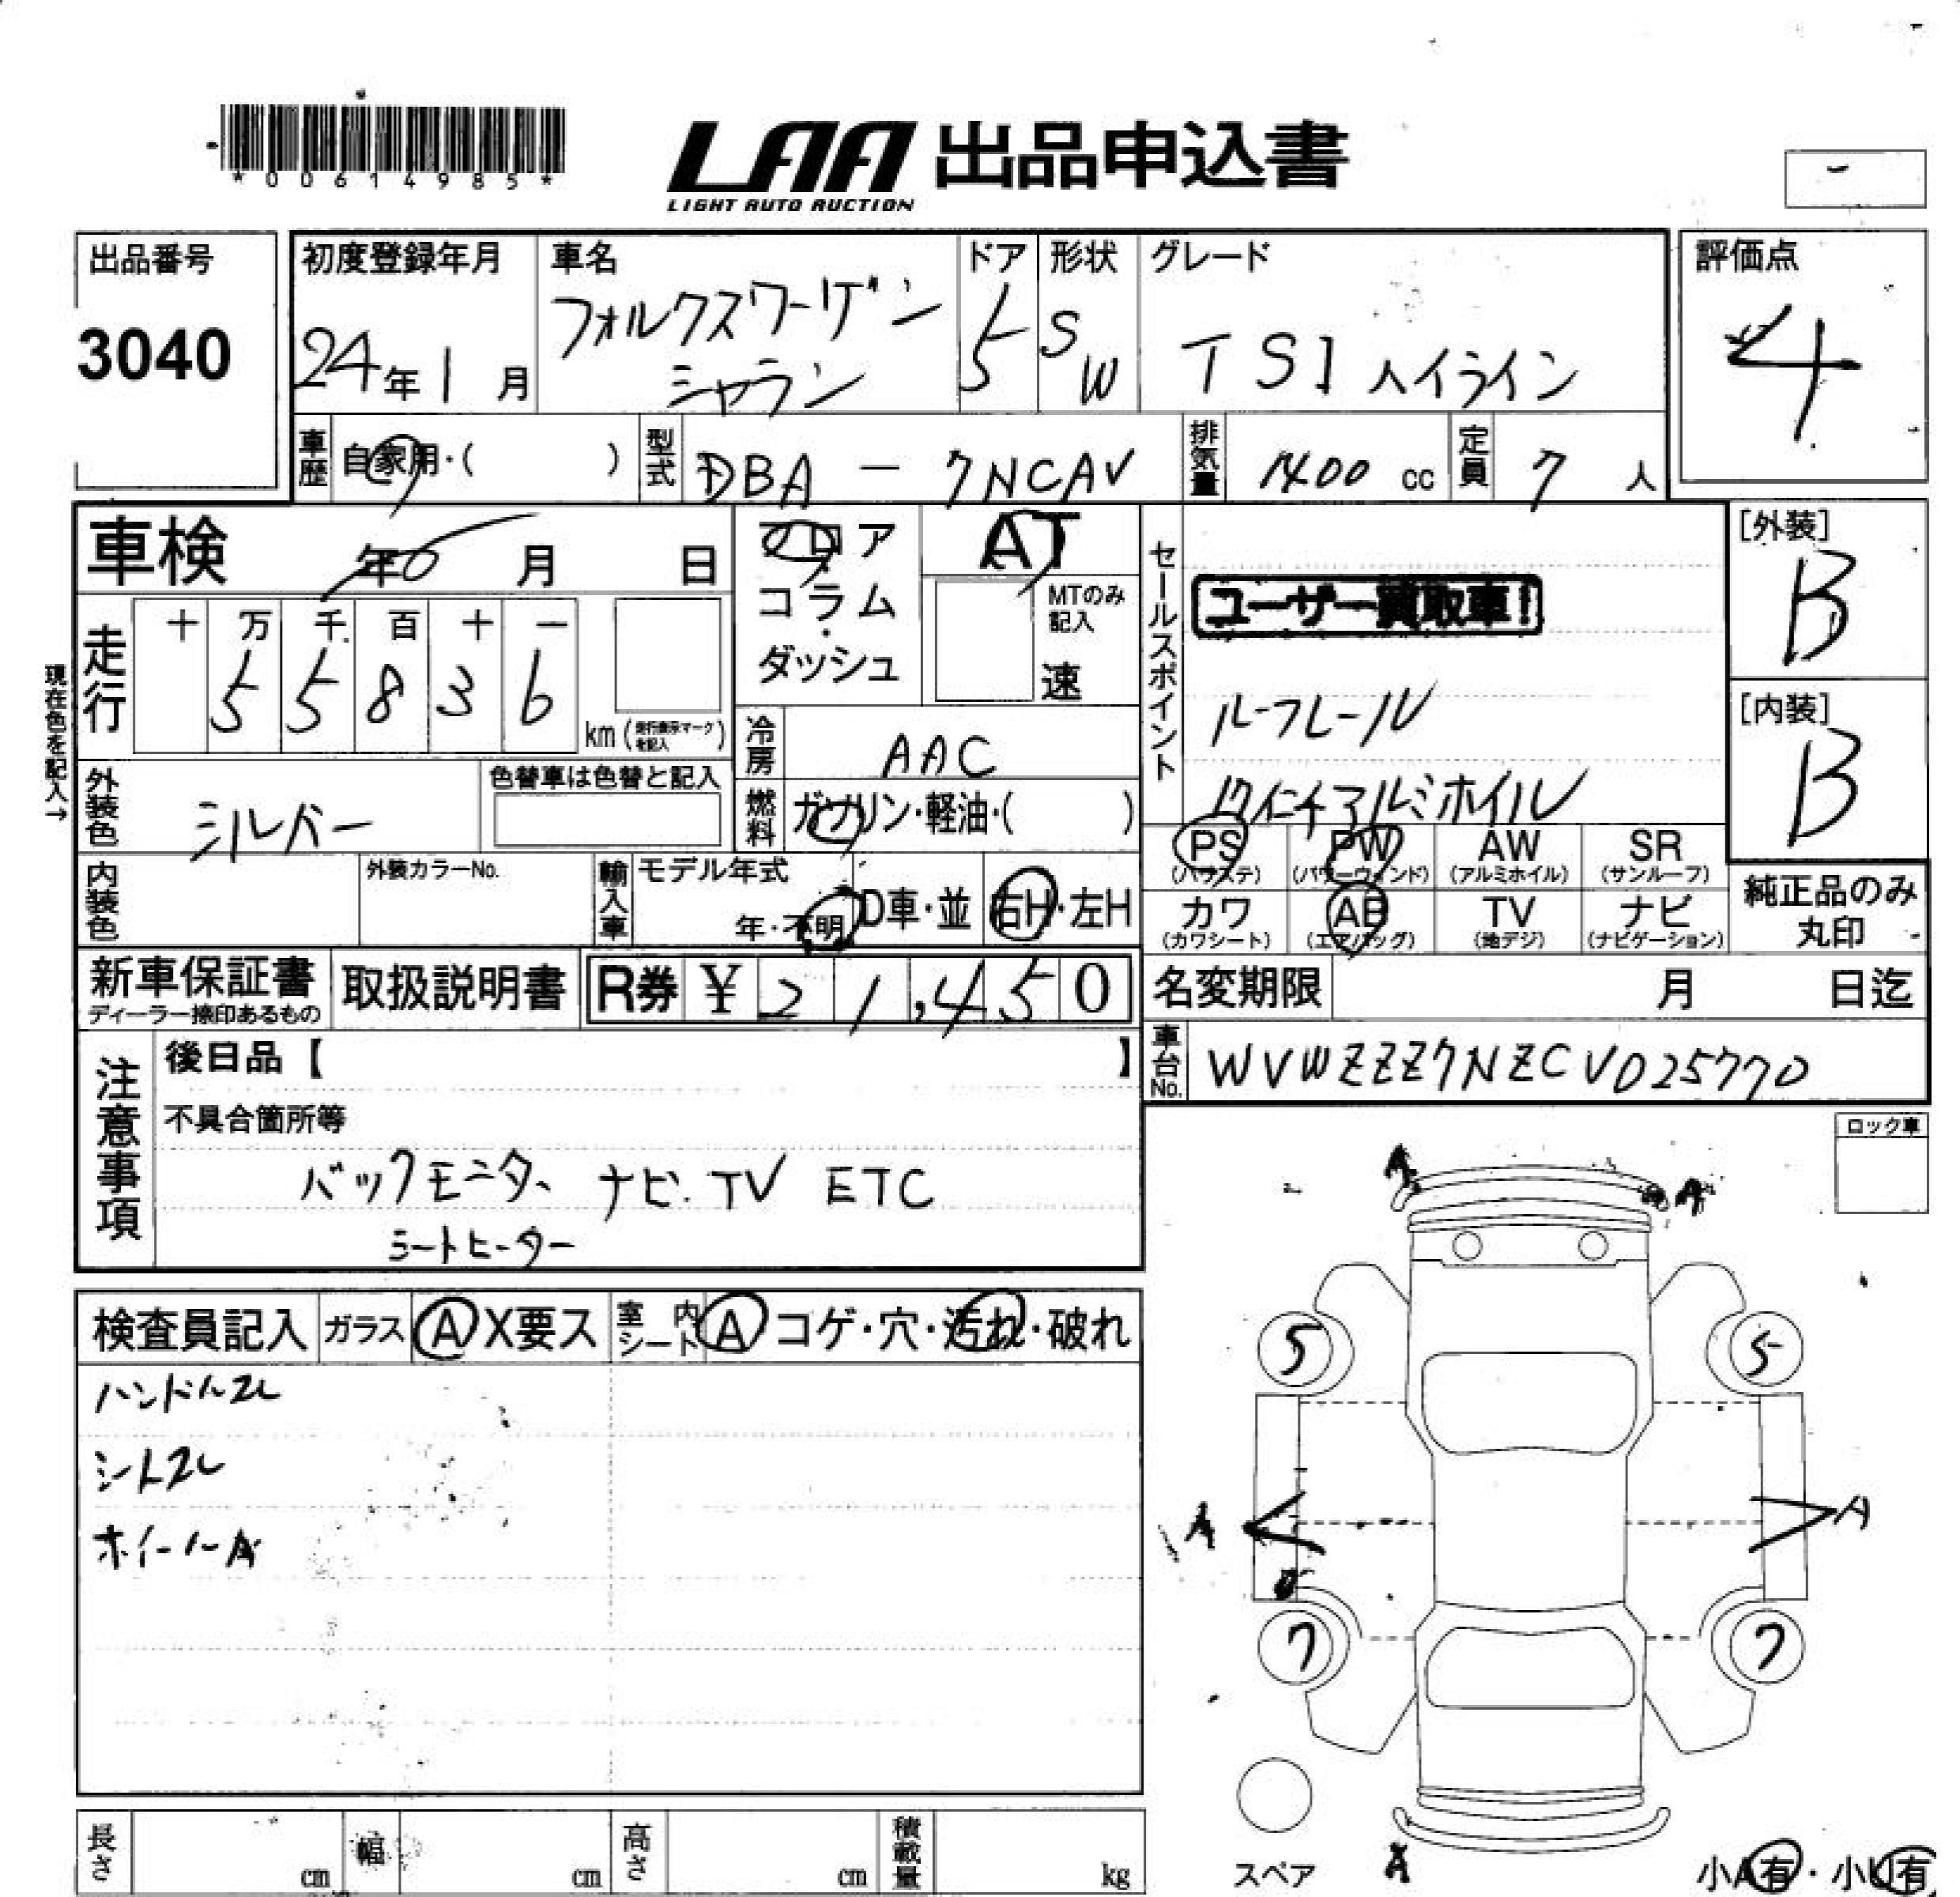 *00614985*
LAA 出品申込書
LIGHT AUTO AUCTION
出品番号
3040
初度登録年月
24年1月
車名
フォルクスワーゲン
シャラン
ドア
5
形状
SW
グレード
TSI ハイライン
評価点
4
車歴
自家用・( )
型式
DBA - 7NCAV
排気量
1400 cc
定員
7 人
車検
年 月 日
フロア
コラム
・
ダッシュ
AT
MTのみ
記入
速
セールスポイント
ユーザー買取車!
ルーフレール
17インチアルミホイル
[外装]
B
[内装]
B
現在色を記入→
走行
十 万 千 百 十 一
5 5 8 3 6
km (走行表示マークを記入)
冷房
AAC
外装色
シルバー
色替車は色替と記入
燃料
ガソリン・軽油・( )
PS
(パワステ)
PW
(パワーウィンド)
AW
(アルミホイル)
SR
(サンルーフ)
内装色
外装カラーNo.
輸入車
モデル年式
年・不明
D車・並
右H・左H
カワ
(カワシート)
AB
(エアバッグ)
TV
(地デジ)
ナビ
(ナビゲーション)
純正品のみ
丸印
新車保証書
ディーラー捺印あるもの
取扱説明書
R券 ¥ 21,450
名変期限
月 日迄
車台No.
WVWZZZ7NZCV025770
注意事項
後日品【 】
不具合箇所等
バックモニタ、ナビ.TV ETC
シートヒーター
ロック車
A
A
検査員記入
ガラス
A X要ス
室内シート
A コゲ・穴・汚れ・破れ
ハンドルスレ
シートスレ
ホイールA
5
5
A
A
7
7
スペア
A
小A有・小U有
長さ
cm
幅
cm
高さ
cm
積載量
kg